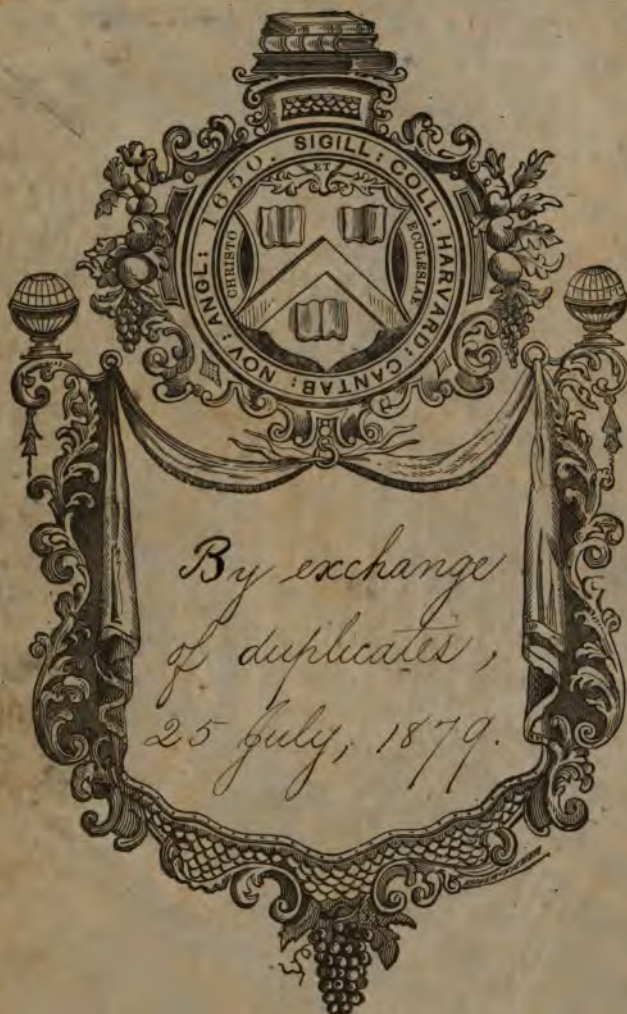 SIGILL: COLL: HARVARD: CANTAB: NOV: ANGL: 1650.
ET
CHRISTO
ECCLESIAE
By exchange
of duplicates,
25 July, 1879.